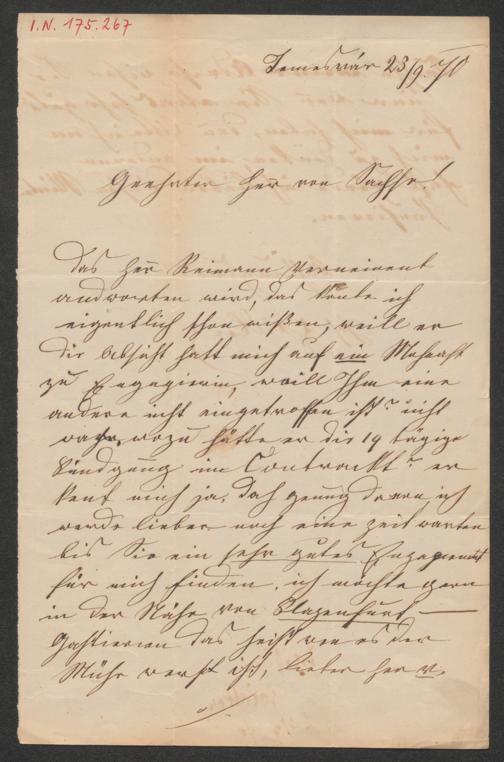 I.N. 175.267
Temesvár 23/9. 70
Geehrter Herr von Sachse!
Das Herr Reimann verneinent
andworten wird, das konte ich
eigentlich schon wißen, weill er
die Absicht hatt mich auf ein Monath
zu Engagieren, weill Ihm eine
andere nicht eingetroffen ist? nicht
wahr, wozu hätte er die 19 tägige
Kündgung im Contrackt? er
kent mich ja, doch genug davon ich
werde lieber noch eine zeit warten
bis Sie ein sehr gutes Engagement
für mich finden, ich möchte gern
in der Nähe von Klagenfurt —
Gastieren das heist wen es der
Mühe werth ist, lieber Her v.